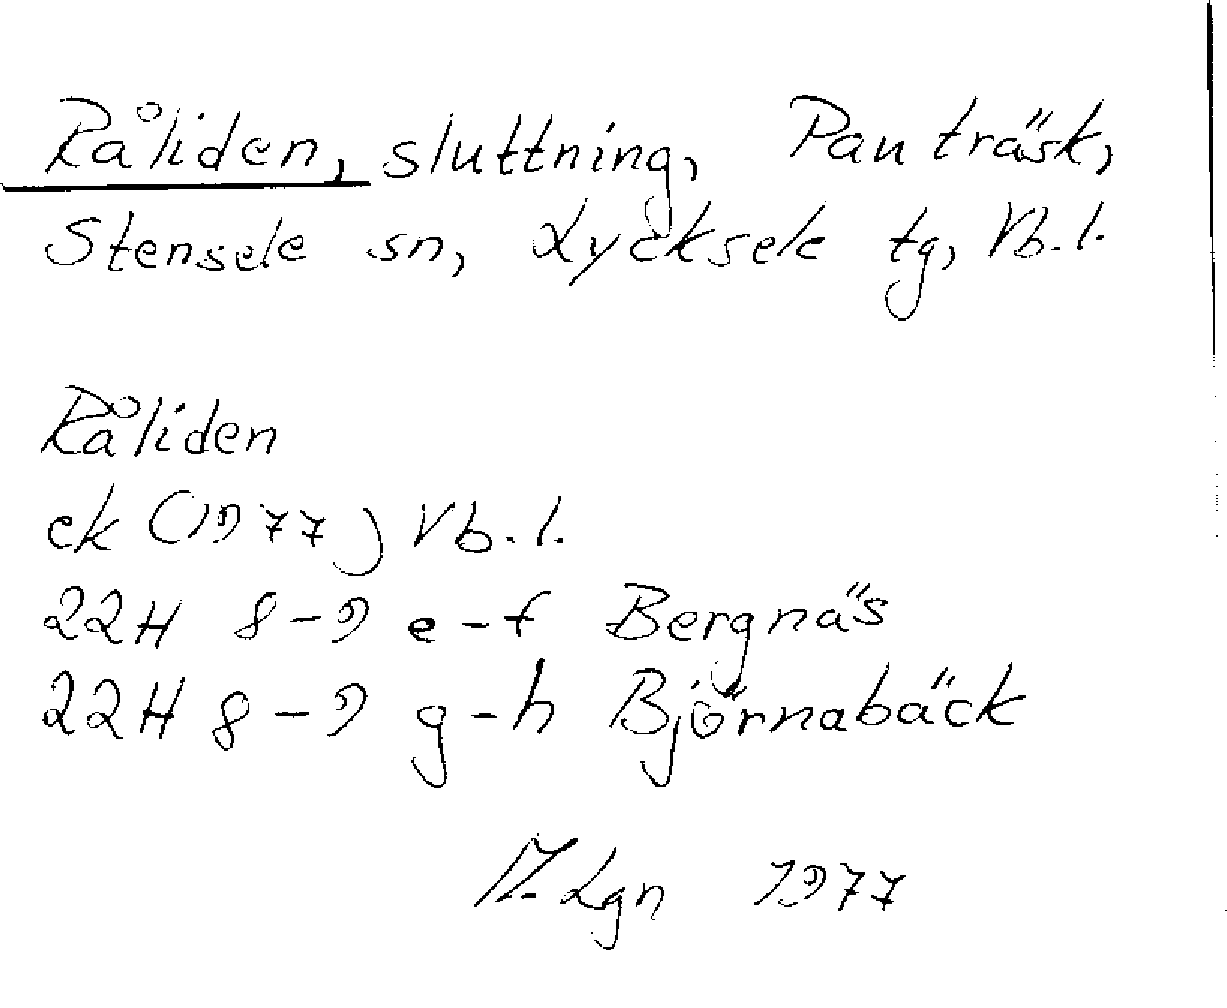 Råliden, sluttning, Panträsk,
Stensele sn, Lycksele tg, Vb.l.
Råliden
ek (1977) Vb.l.
22H 8-9 e-f Bergnäs
22H 8-9 g-h Björnabäck
Lgn 1977